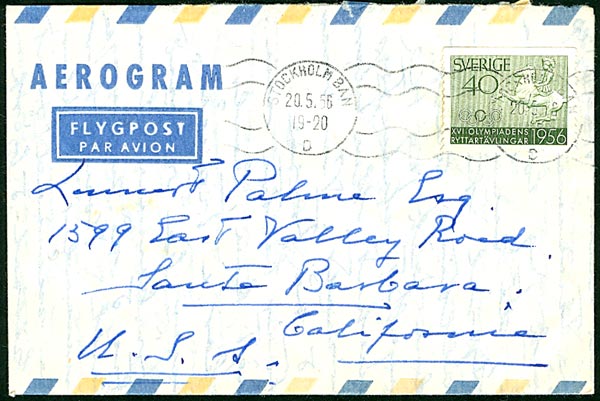 AEROGRAM
FLYGPOST
PAR AVION
STOCKHOLM BAN
20.5.56
19-20
C
SVERIGE
40
XVI OLYMPIADENS
RYTTARTÄVLINGAR 1956
Lennart Palme Esq.
1599 East Valley Road.
Santa Barbara.
California
U.S.A.